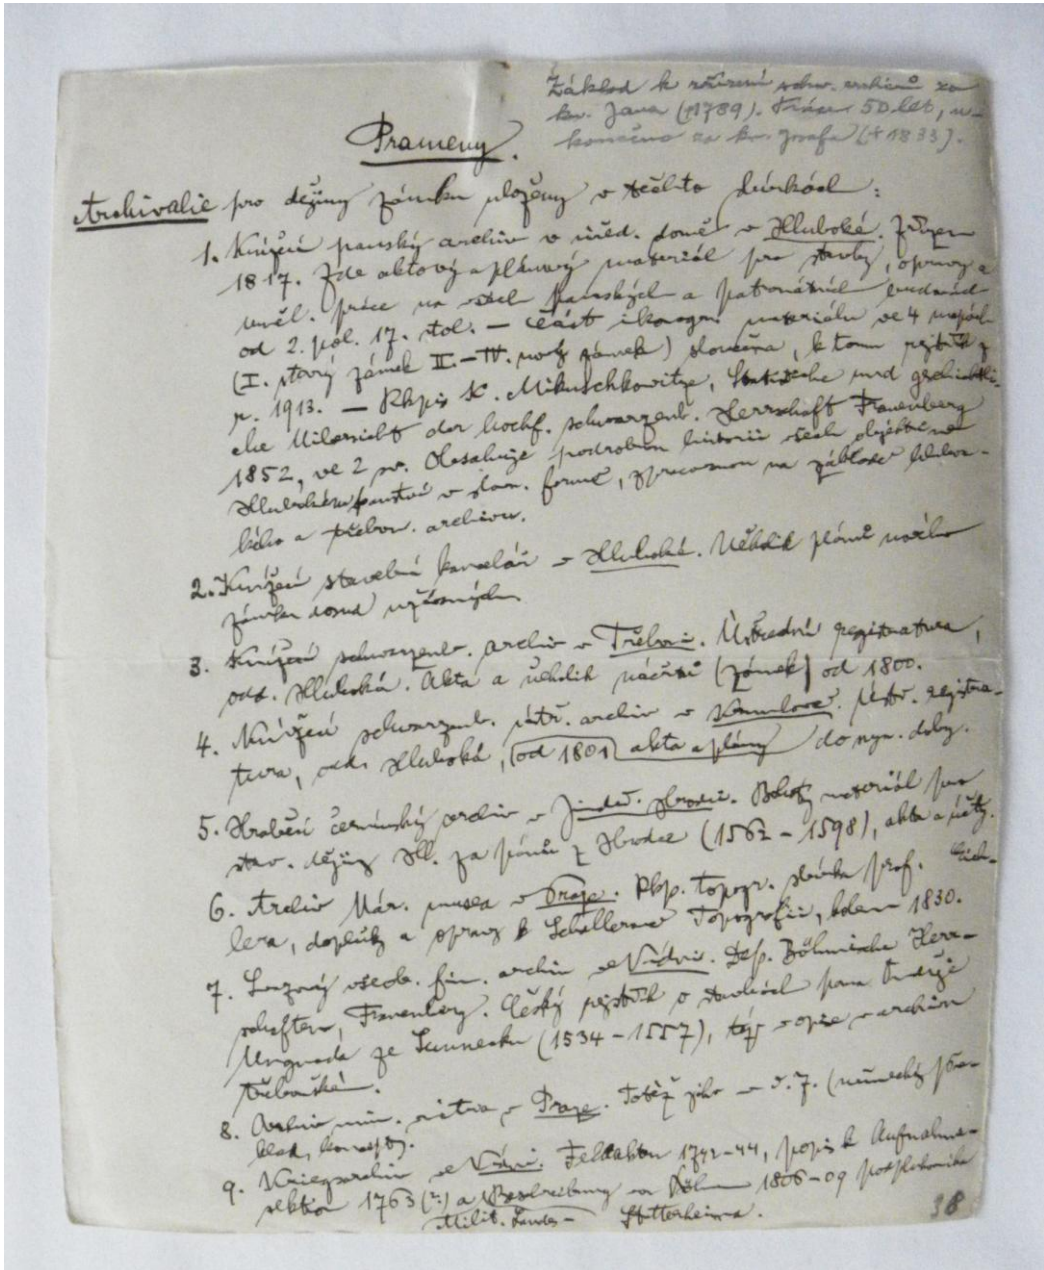 Základ k zřízení schw. archivů za
kn. Jana (†1789). Práce 50 let, u-
končena za kn. Josefa (†1833).
Prameny.
Archivalie pro dějiny zámku uloženy v těchto
1. Knížecí panský archiv v úřed. domě v Hluboké. Zřízen
1817. Zde aktový a plánový materiál pro stavby, opravy a
uměl. práce na všech panských a patronátních budovách
od 2. pol. 17. stol. — Část ikonogr. materiálu ve 4 mapách
(I. starý zámek II.–IV. nový zámek) sloučena, k tomu rejstřík z
r. 1913. — Rkpis K. Mikuschkowitze, und geschichtli-
che Übersicht der hochf. schwarzenb. Herrschaft Frauenberg
1852, ve 2 sv. Obsahuje podrobnou historii všech objektů na
panství v slov. formě, zpracovanou na základě hlubo-
kého a třeboň. archivu.
2. Knížecí stavební kancelář v Hluboké. Několik plánů
zámku dosud
3. Knížecí schwarzenb. archiv v Třeboni. Ústřední registratura,
odd. Hluboká. Akta a několik náčrtů (zámek) od 1800.
4. Knížecí schwarzenb. ústř. archiv v Krumlově. Ústř. registra-
tura, odd. Hluboká, od 1801 akta a plány do nyn. doby.
5. Hraběcí černínský archiv v Jindř. Hradci. Bohatý materiál pro
stav. dějiny Hl. za pánů z Hradce (1562–1598), akta a účty.
6. Archiv Nár. musea v Praze. Rkp. topogr. sbírka prof. Eich-
lera, doplňky a opravy k Schallerově Topografii, kolem 1830.
7. fin. archiv ve Vídni. Dep. Böhmische Herr-
schaften, Frauenberg. Český rejstřík o stavbách pana Ondřeje
Ungnada ze Sunneku (1534–1557), týž v opise v archivu
třeboňském.
8. Archiv min. vnitra v Praze. Totéž jako v č. 7. (německý pře-
klad, koncepty).
9. Kriegsarchiv ve Vídni. Feldakten 1742–44, popis k Aufnahms-
sektion 1763 (?) a Beschreibung von Böhmen 1806–09 podplukovníka
Milit. Landes- Stutterheima.
38